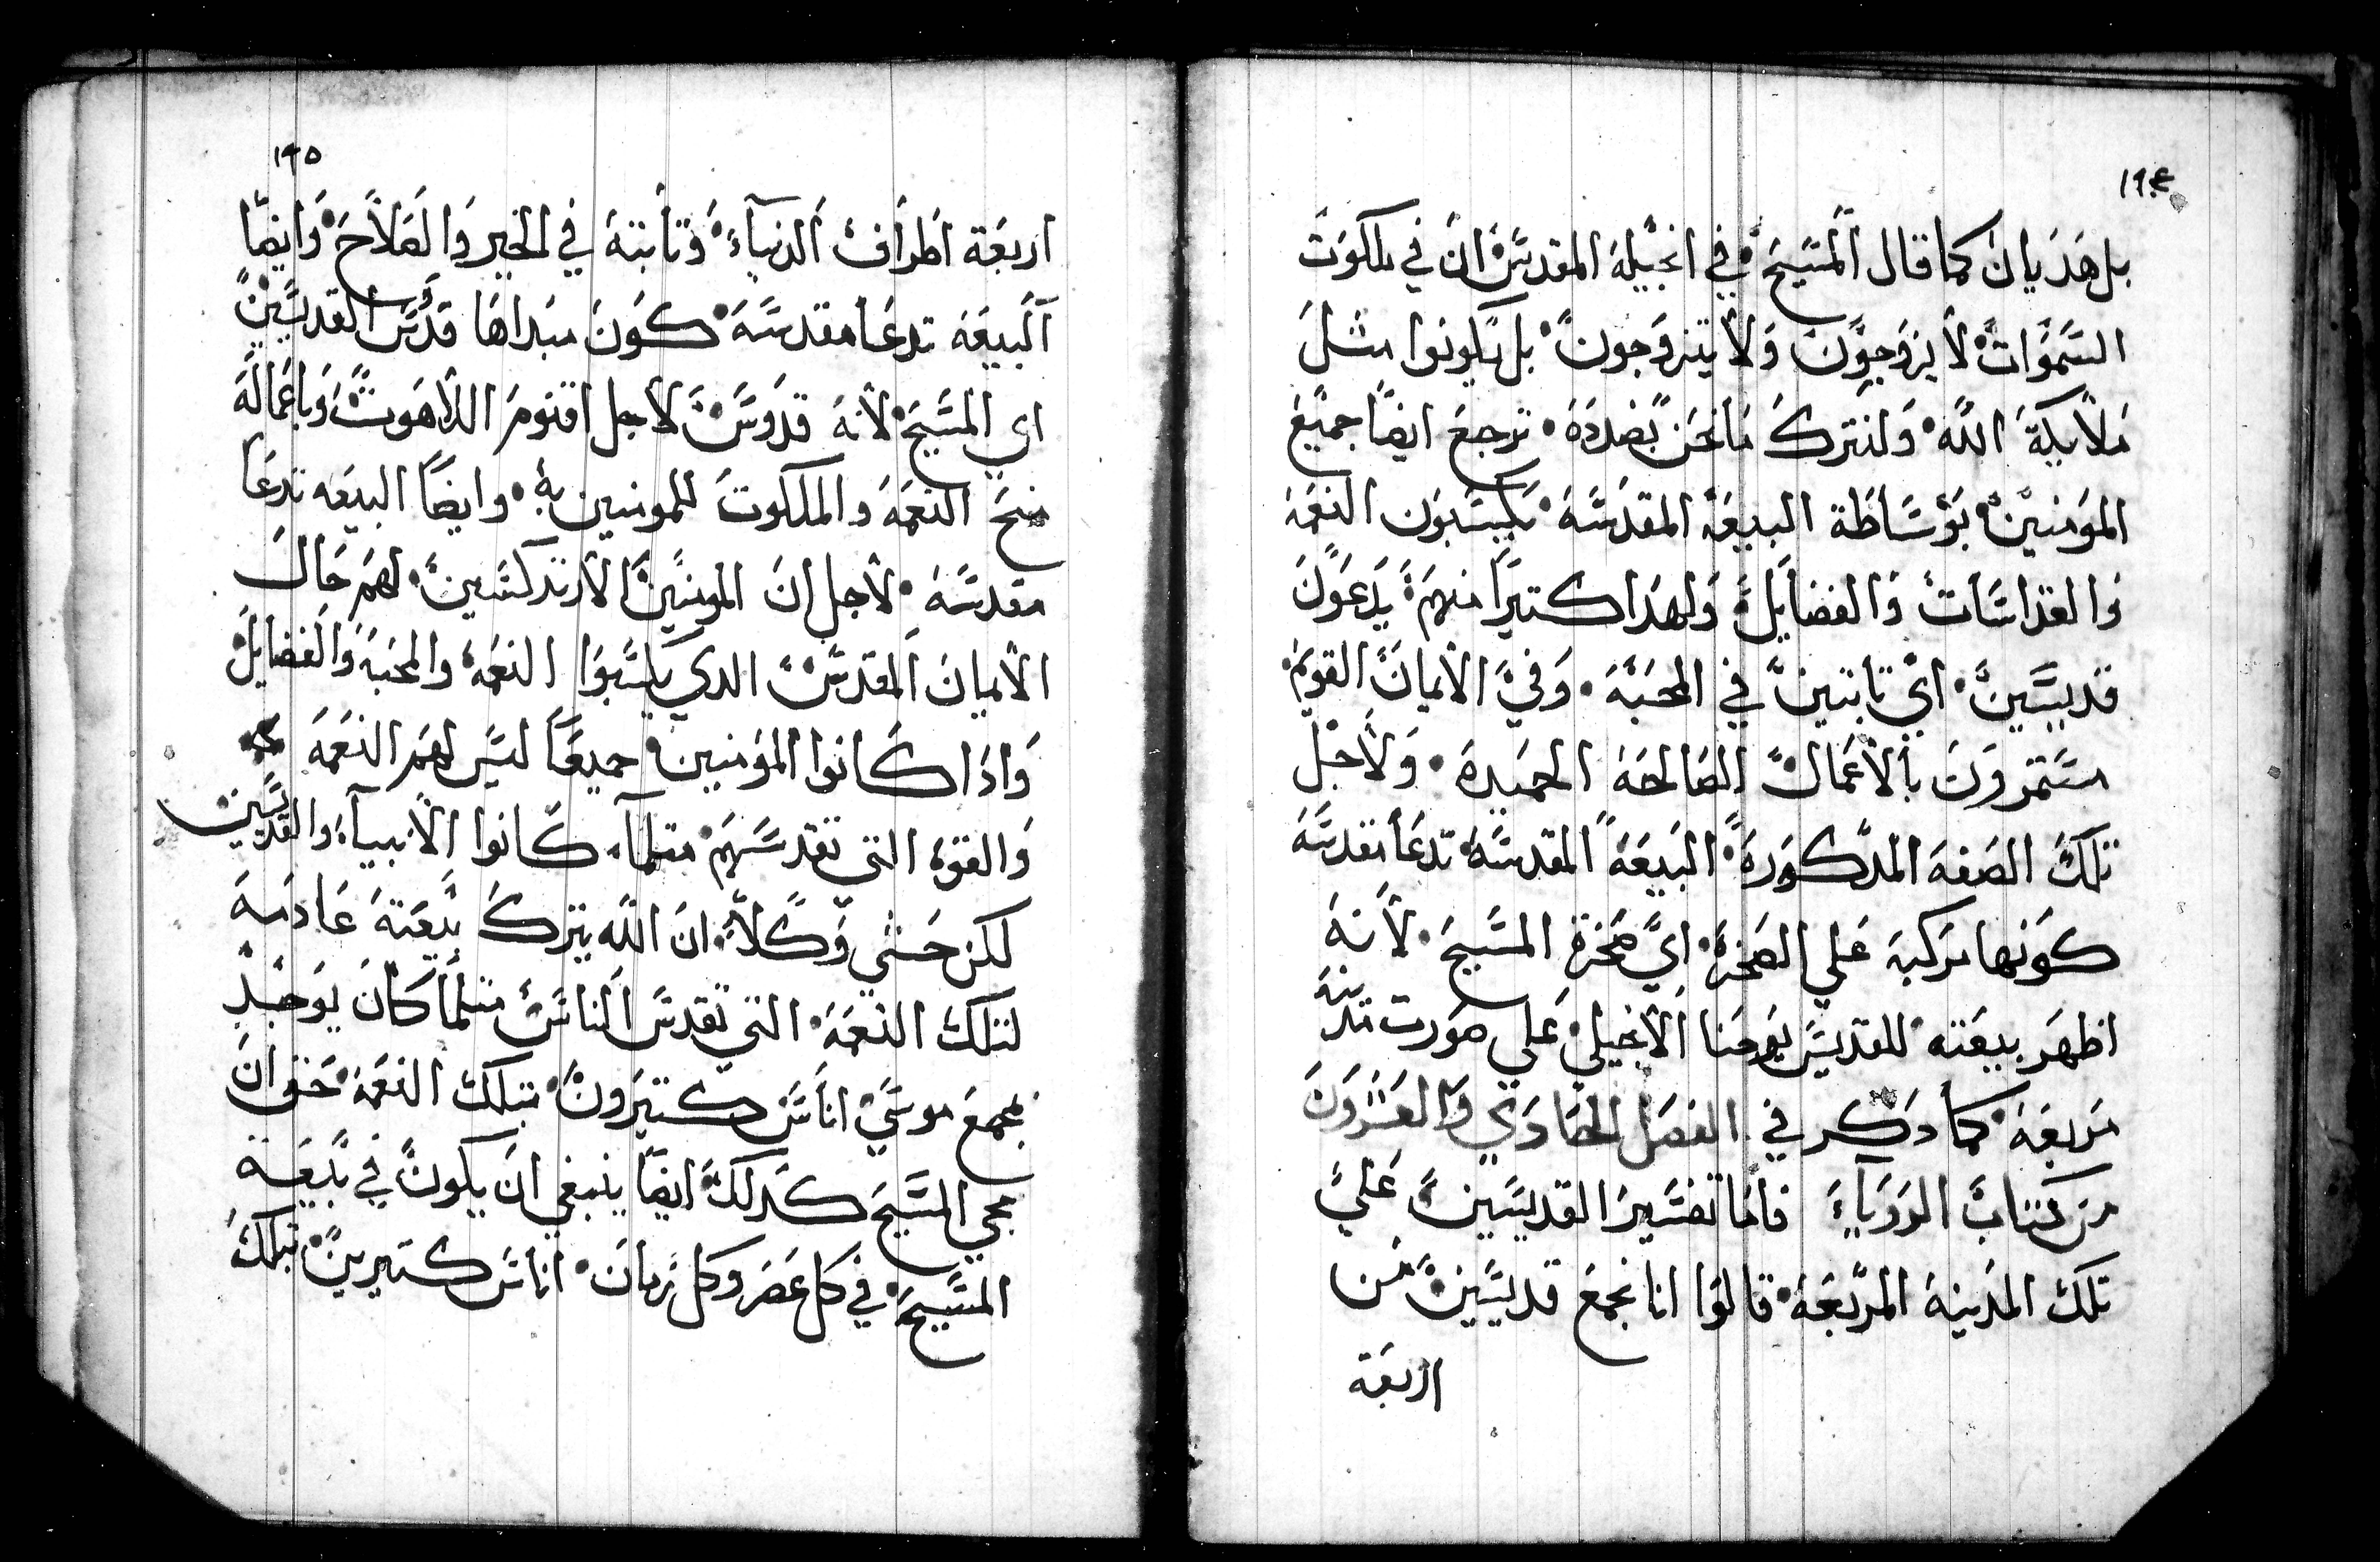 ١٩٤
بل هديان كما قال المسيح في انجيله المقدس ان في ملكوت
السموات لا يزوجون ولا يتزوجون بل يكونوا مثل
ملايكة الله ولنترك ما نحن بصدده نرجع ايضا جميع
المومنين بوساطة البيعه المقدسه يكتسبون النعمه
والقداسات والفضايل ولهدا كتيرا منهم يدعون
قديسين اي تابتين في المحبه وفي الايمان القويم
مستمرون بالاعمال الصالحه الحميده ولاجل
تلك الصفه المدكوره البيعه المقدسه تدعا مقدسه
كونها مركبه علي الصخره اي صخرة المسيح لانه
اظهر بيعته للقديس يوحنا الانجيلي علي صورت مدينه
مربعه كما دكر في الفصل الحادي والعشرون
من كتاب الروياء فاما تفسير القديسين علي
تلك المدينه المربعه قالوا انا نجمع قديسين من
اربعة
١٩٥
اربعة اطراف الدنياء وتابته في الخير والصلاح وايضا
البيعه تدعا مقدسه كون مبداها قدس القديسين
اي المسيح لانه قدوس لاجل اقنوم اللاهوت وباعماله
منح النعمه والملكوت للمومنين به وايضا البيعه تدعا
مقدسه لاجل ان المومنين الارتدكسين لهم حال
الايمان المقدس الدي يكتسبوا النعمه والمحبه والفضايل
وادا كانوا المومنين جميعا ليس لهم النعمه
والقوه التي تقدسهم متلما كانوا الانبياء والقديسين
لكن حشي وكلا ان الله يترك بيعته عادمه
لتلك النعمه التي تقدس الناس متلما كان يوجد
بمجمع موسي اناس كتيرون بتلك النعمه حتي ان
مجي المسيح كدلك ايضا ينبغي ان يكون في بيعة
المسيح في كل عصر وكل زمان اناس كتيرين بتلك